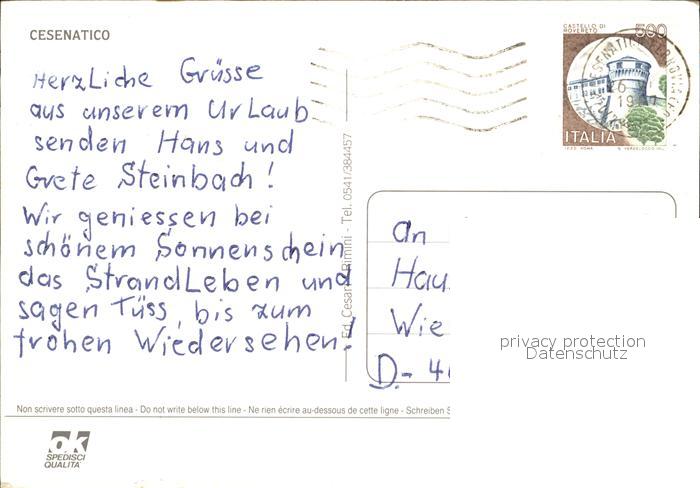 CESENATICO
Herzliche Grüsse
aus unserem Urlaub
senden Hans und
Grete Steinbach!
Wir geniessen bei
schönem Sonnenschein
das Strandleben und
sagen Tüss, bis zum
frohen Wiedersehen!
Rimini - Tel. 0541/384457
CASTELLO DI
ROVERETO
500
ITALIA
An
Hau
Wie
D-4
privacy protection
Datenschutz
Non scrivere sotto questa linea - Do not write below this line - Ne rien écrire au-dessous de cette ligne - Schreiben S
ok
SPEDISCI
QUALITA'